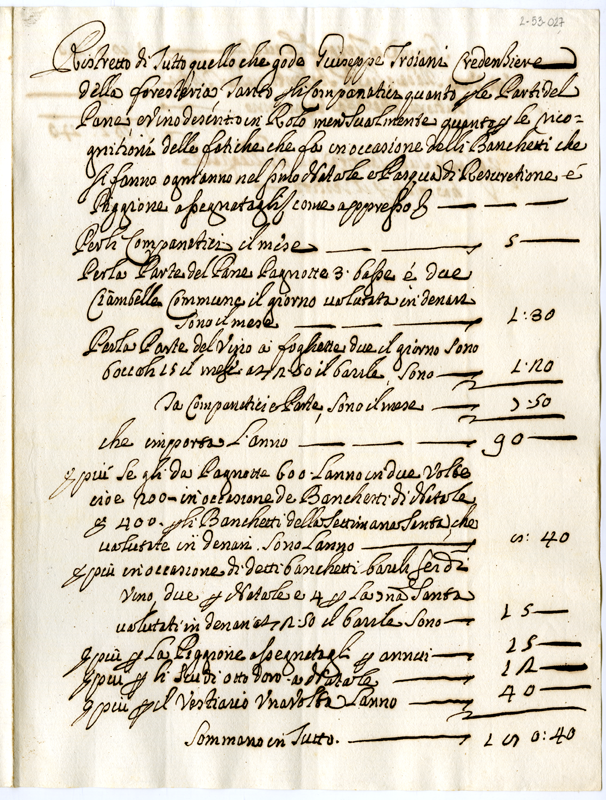 2-53-027
Ristretto di Tutto quello che gode Giuseppe Troiani Credenhiere
della foresteria Tanto gli Companatici quanto p le Parti del
Pane, e vino descritto in Rolo mensualmente quanto p le rico=
gnitioni delle fatiche che fa in occasione delli Banchetti che
si fanno ogn'anno nel Natale e Pasqua di Resuretione é
Piggione assegnetagli come appresso
Per li Companatici il mese 5
Per la Parte del Pane Pagnotte 3. basse é due
Ciambelle Commune il giorno valutata in denari
sono il mese 1:30
Per la Parte del Vino a fogliette due il giorno sono
boccali 15 il mese a 2:50 il barile, sono 1:20
Ta Companatici e Parte, sono il mese 7:50
che importa L'anno 90
p più se gli da Pagnotte 600. L'anno in due Volte
cioe 200 in occasione de Banchetti di Natale
e 400. p li Banchetti della Settimana Santa, che
valutate in denari. sono L'anno 8:40
p più in occasione di detti banchetti barili sei di
vino due p Natale e 4 p La Santa
valutati in denari a 2:50 il barile sono 15
p più p La Piggione assegnetagli p annui 15
p più p li Scudi otto d'oro a Natale 12
p più p il Vestiario Una Volta L'anno 40
Sommano in Tutto. 180:40